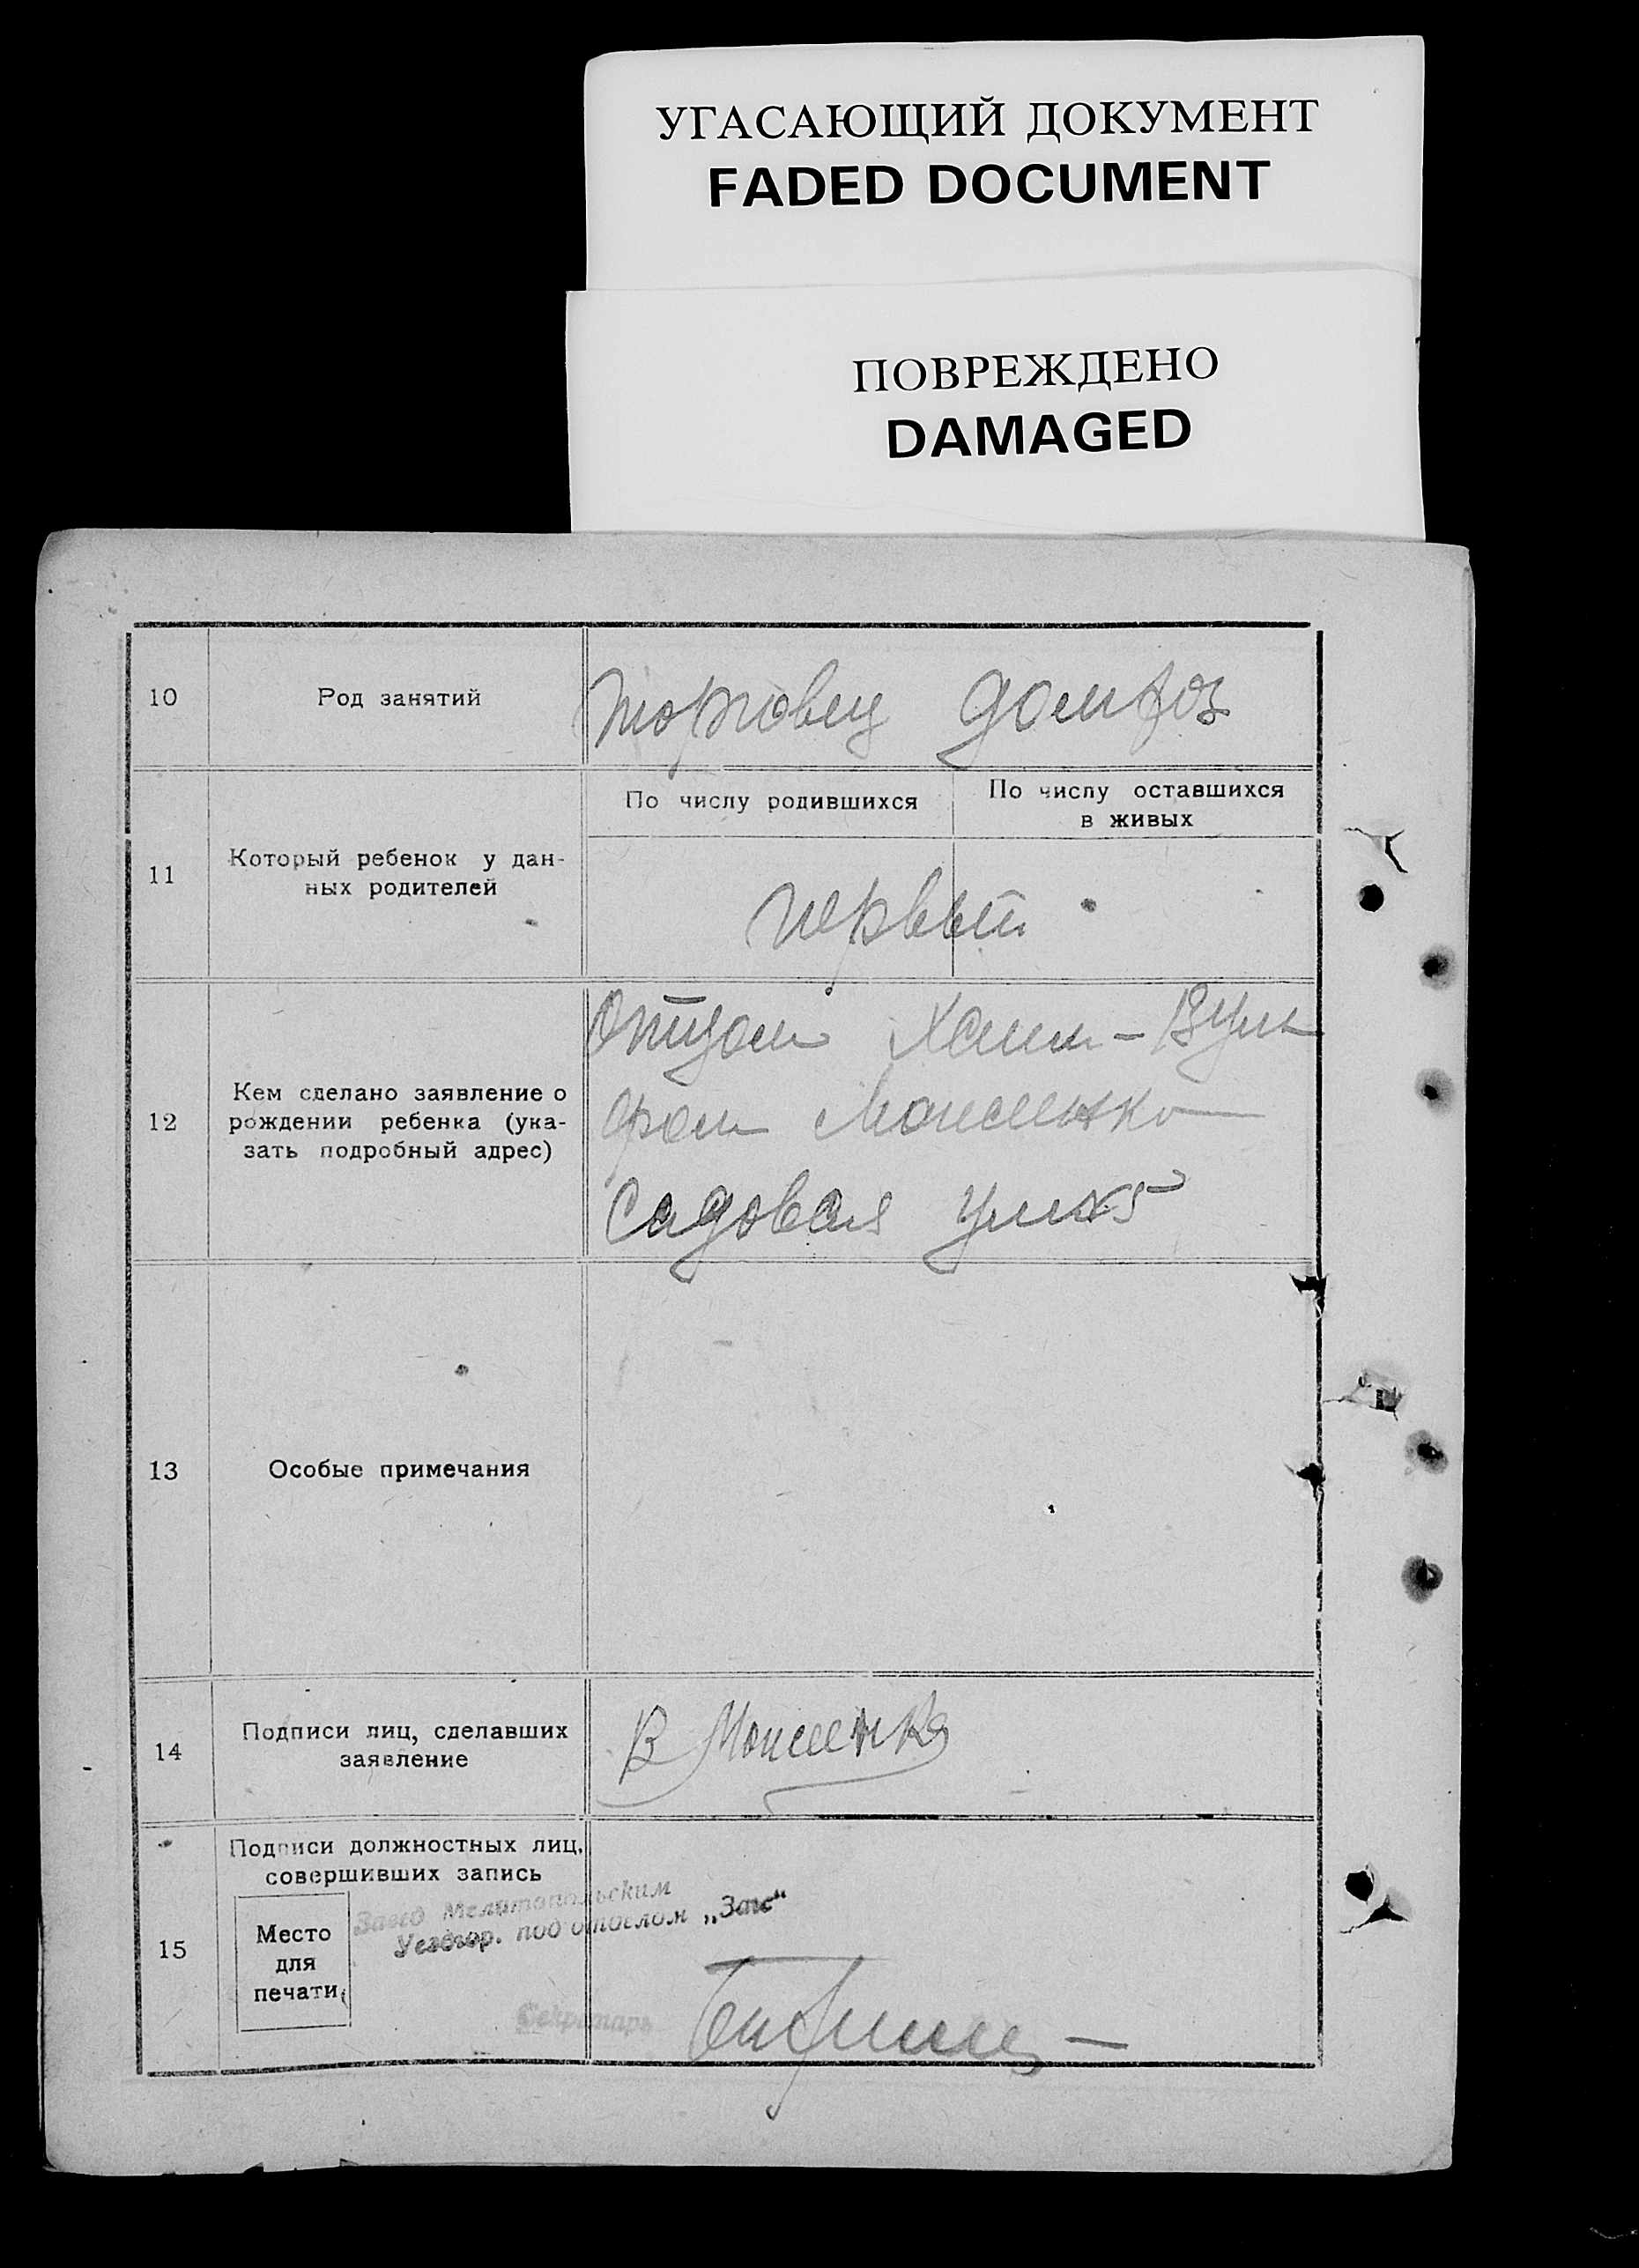 УГАСАЮЩИЙ ДОКУМЕНТ
FADED DOCUMENT
ПОВРЕЖДЕНО
DAMAGED
10
Род занятий
торговец домхоз
По числу родившихся
По числу оставшихся
в живых
11
Который ребенок у дан-
ных родителей
первый
12
Кем сделано заявление о
рождении ребенка (ука-
зать подробный адрес)
Отцом
Моисеенко
Садовая
13
Особые примечания
14
Подписи лиц, сделавших
заявление
В Моисеенко
15
Подписи должностных лиц,
совершивших запись
Место
для
печати
Завед Мелитопольским
Уездгор. подотделом „Загс“
Секретарь